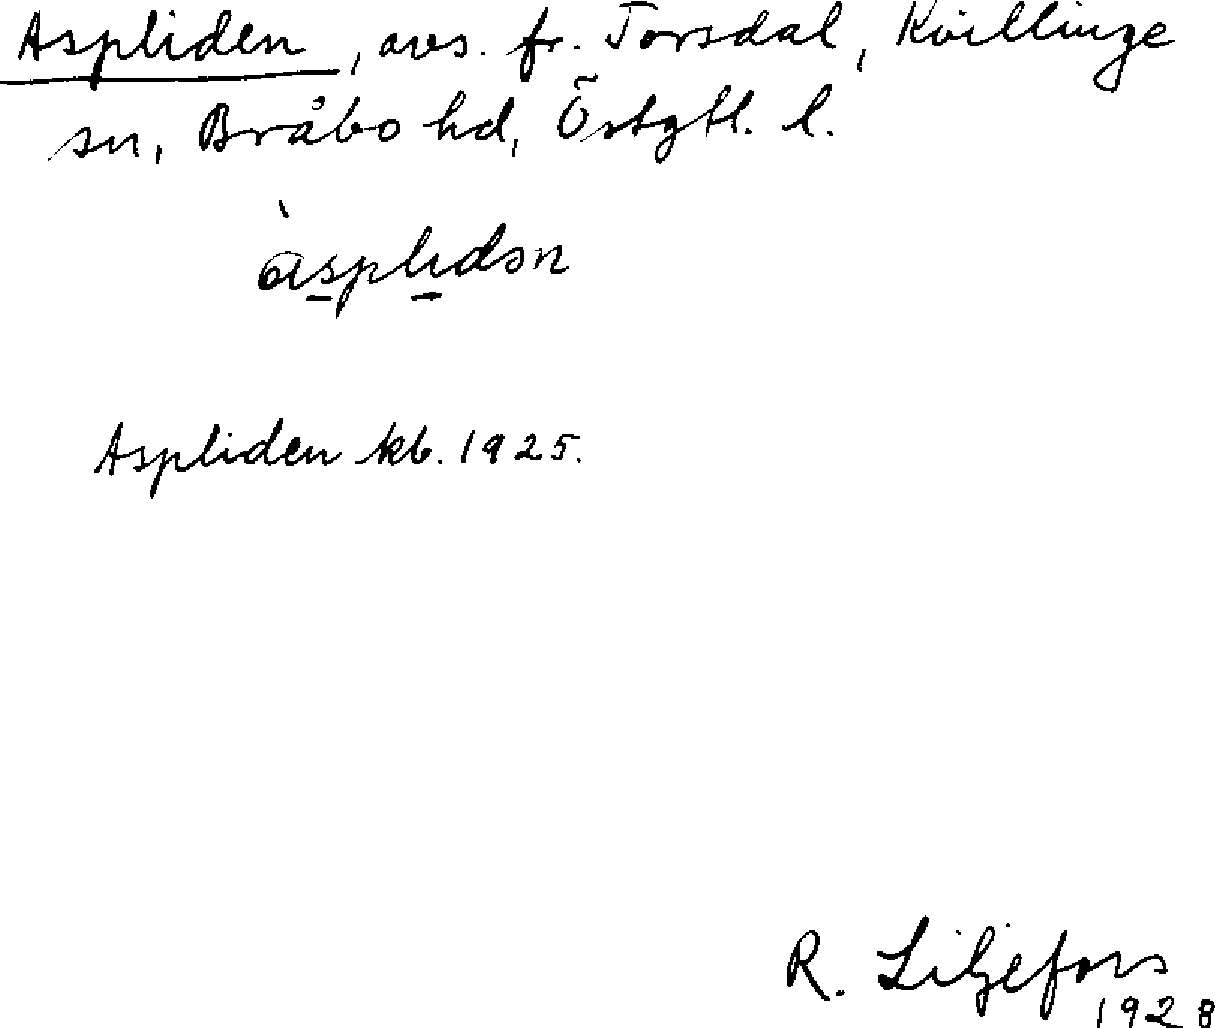 Aspliden, avs. fr. Torsdal, Kvillinge
sn, Bråbo hd, Östgtl. l.
àsplidən
Aspliden kb. 1925.
R. Liljefors
1928